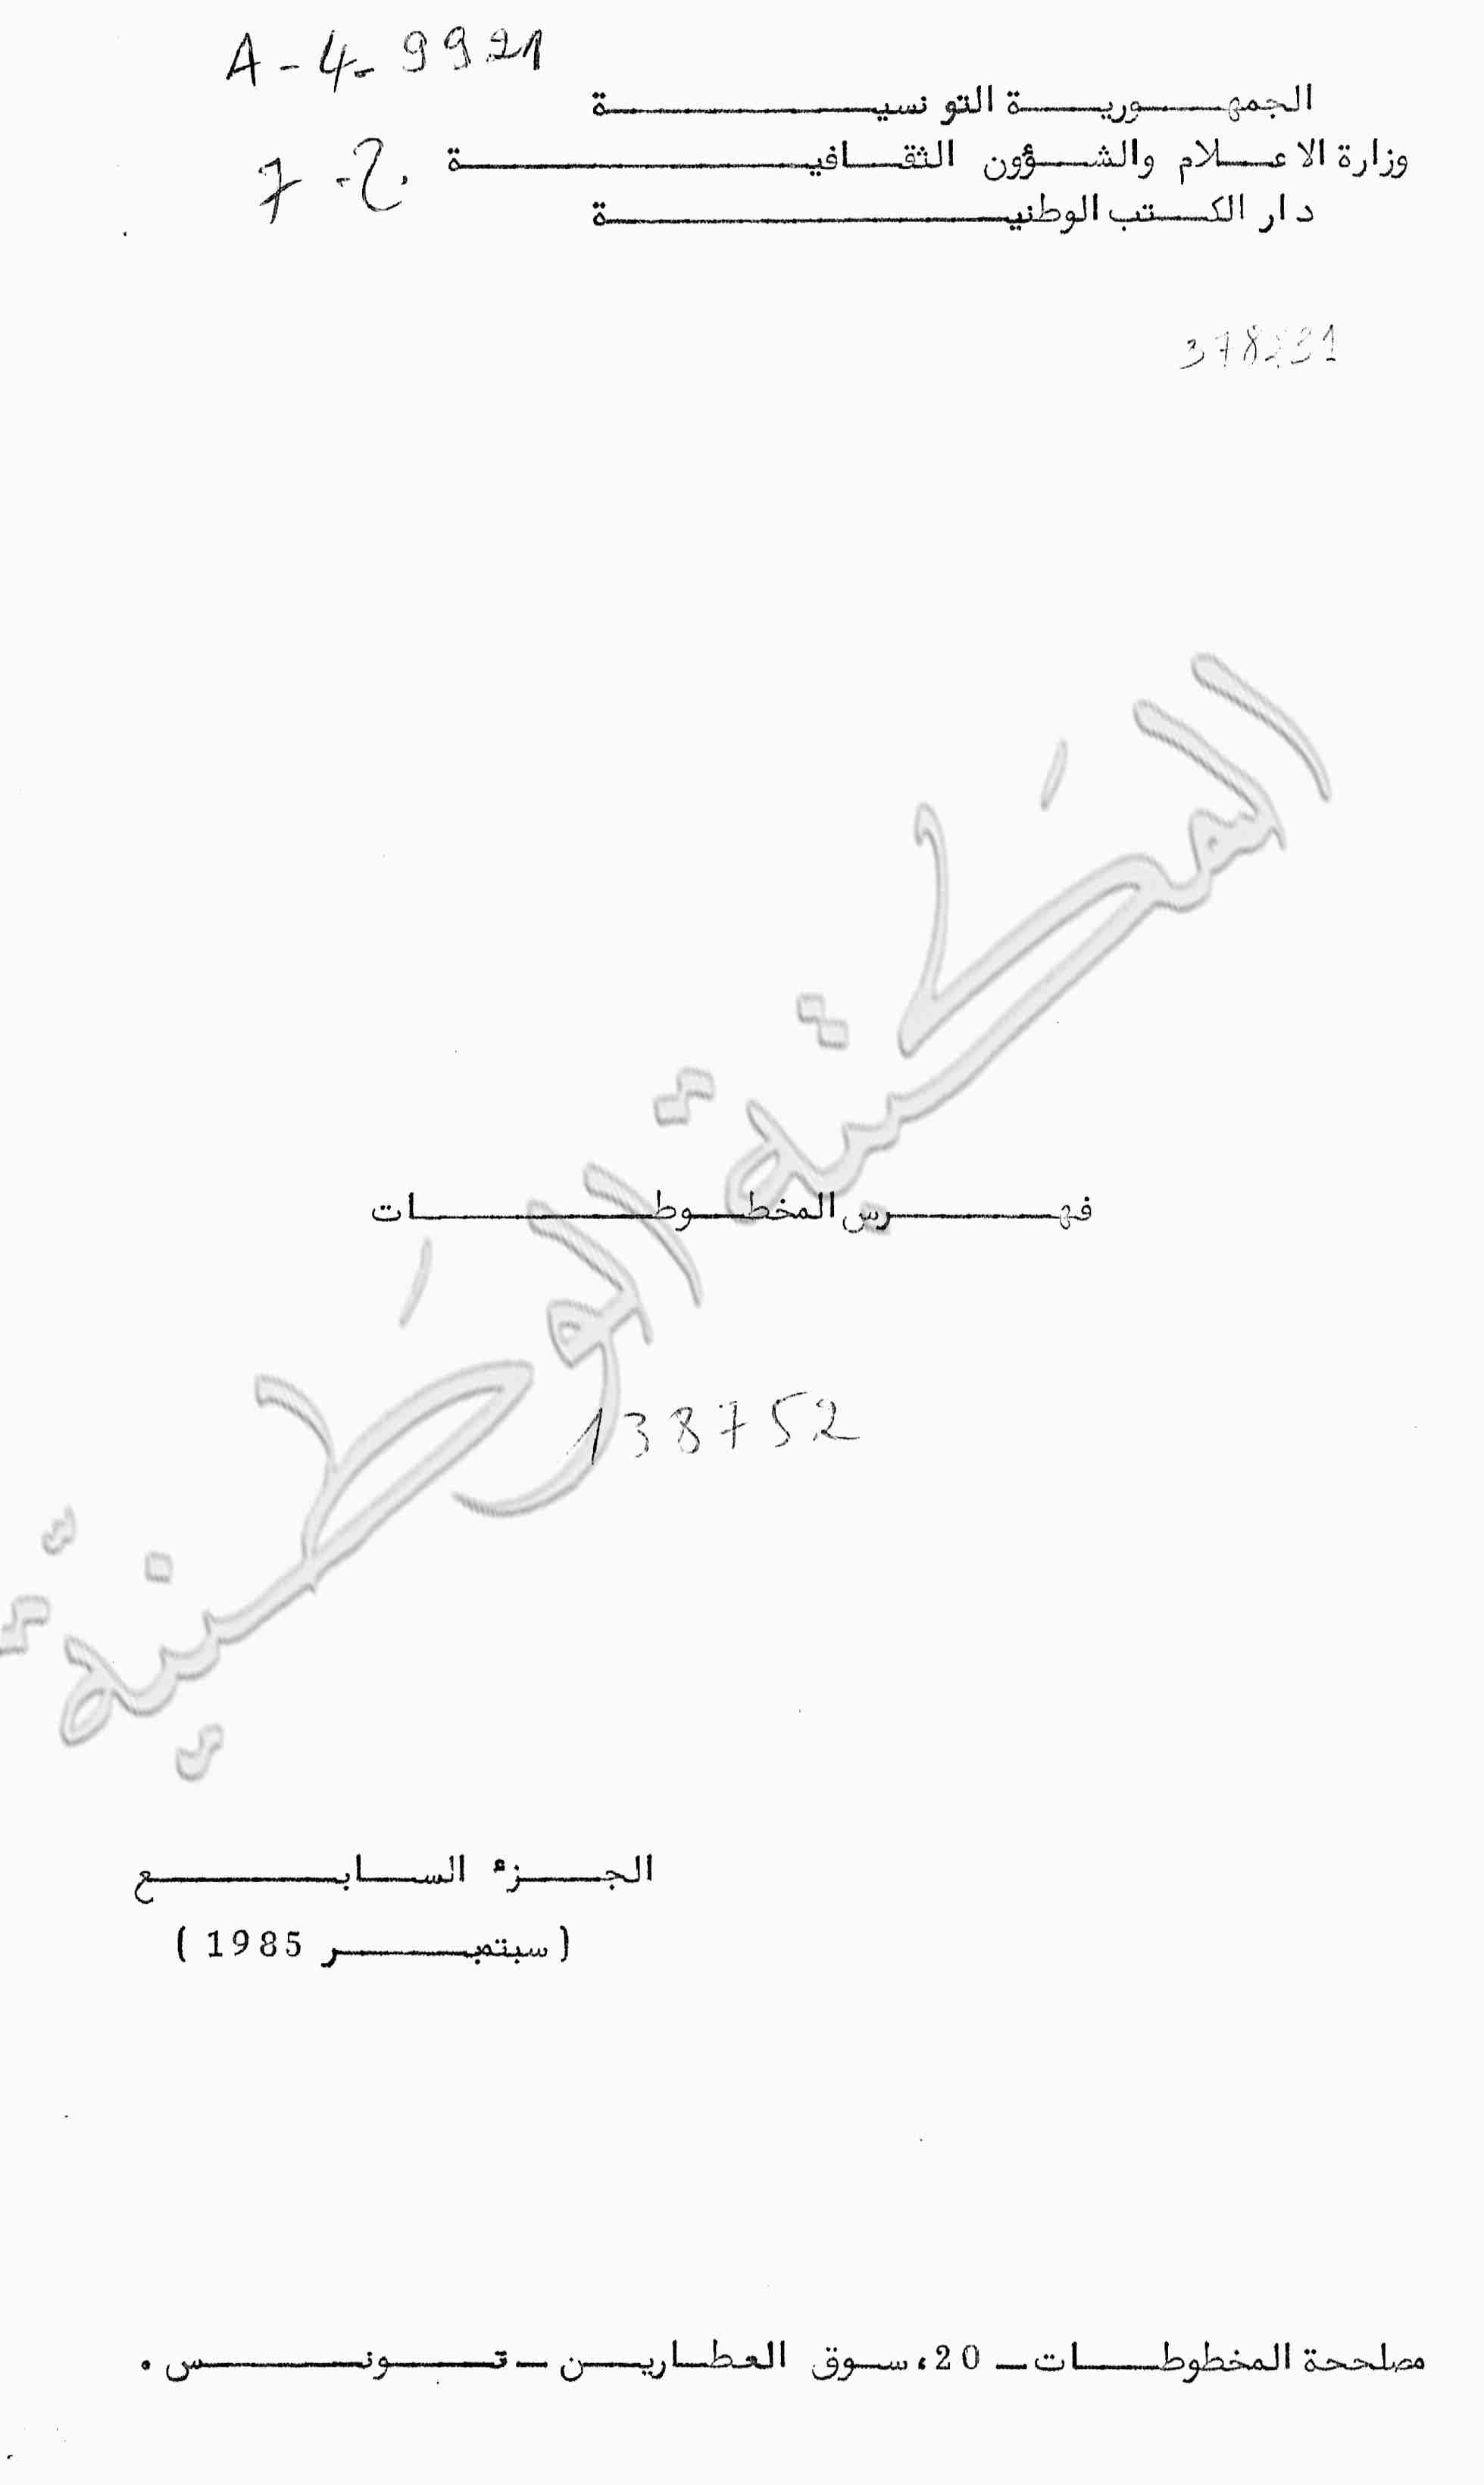 A-4-9921
الجمهورية التونسية
وزارة الاعلام والشؤون الثقافية
7-ج.
دار الكتب الوطنية
المكتبة الوطنية
فهرس المخطوطات
138752
الجزء السابع
(سبتمبر 1985)
مصلحة المخطوطات - 20، سوق العطارين - تونس.